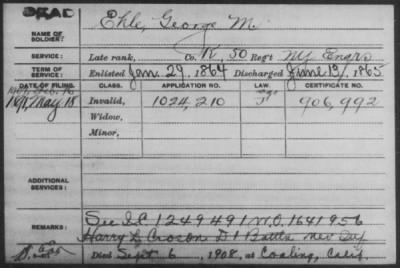 DEAD
NAME OF SOLDIER: Ehle, George M.
SERVICE: Late rank, Co. K, 50 Reg't NY Engrs
TERM OF SERVICE: Enlisted Jan. 29, 1864 Discharged June 13, 1865
DATE OF FILING. CLASS. APPLICATION NO. LAW. CERTIFICATE NO.
May 18 Invalid, 1024,210 906,992
Widow,
Minor,
ADDITIONAL SERVICES:
REMARKS: See I.C. 1249491 W.O. 1641956
Harry L Croson D 1 Battn Nev
Died Sept 6, 1908, at Coaling, Calif.